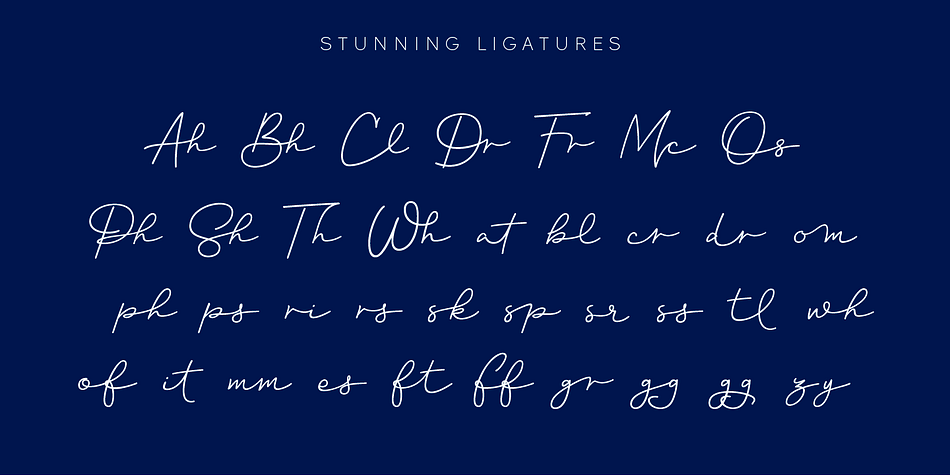 STUNNING LIGATURES
Ah Bh Cl Dr Fr Mc Os
Ph Sh Th Wh at bl cr dr om
ph ps ri rs sk sp sr ss tl wh
of it mm es ft ff gr gg gg zy